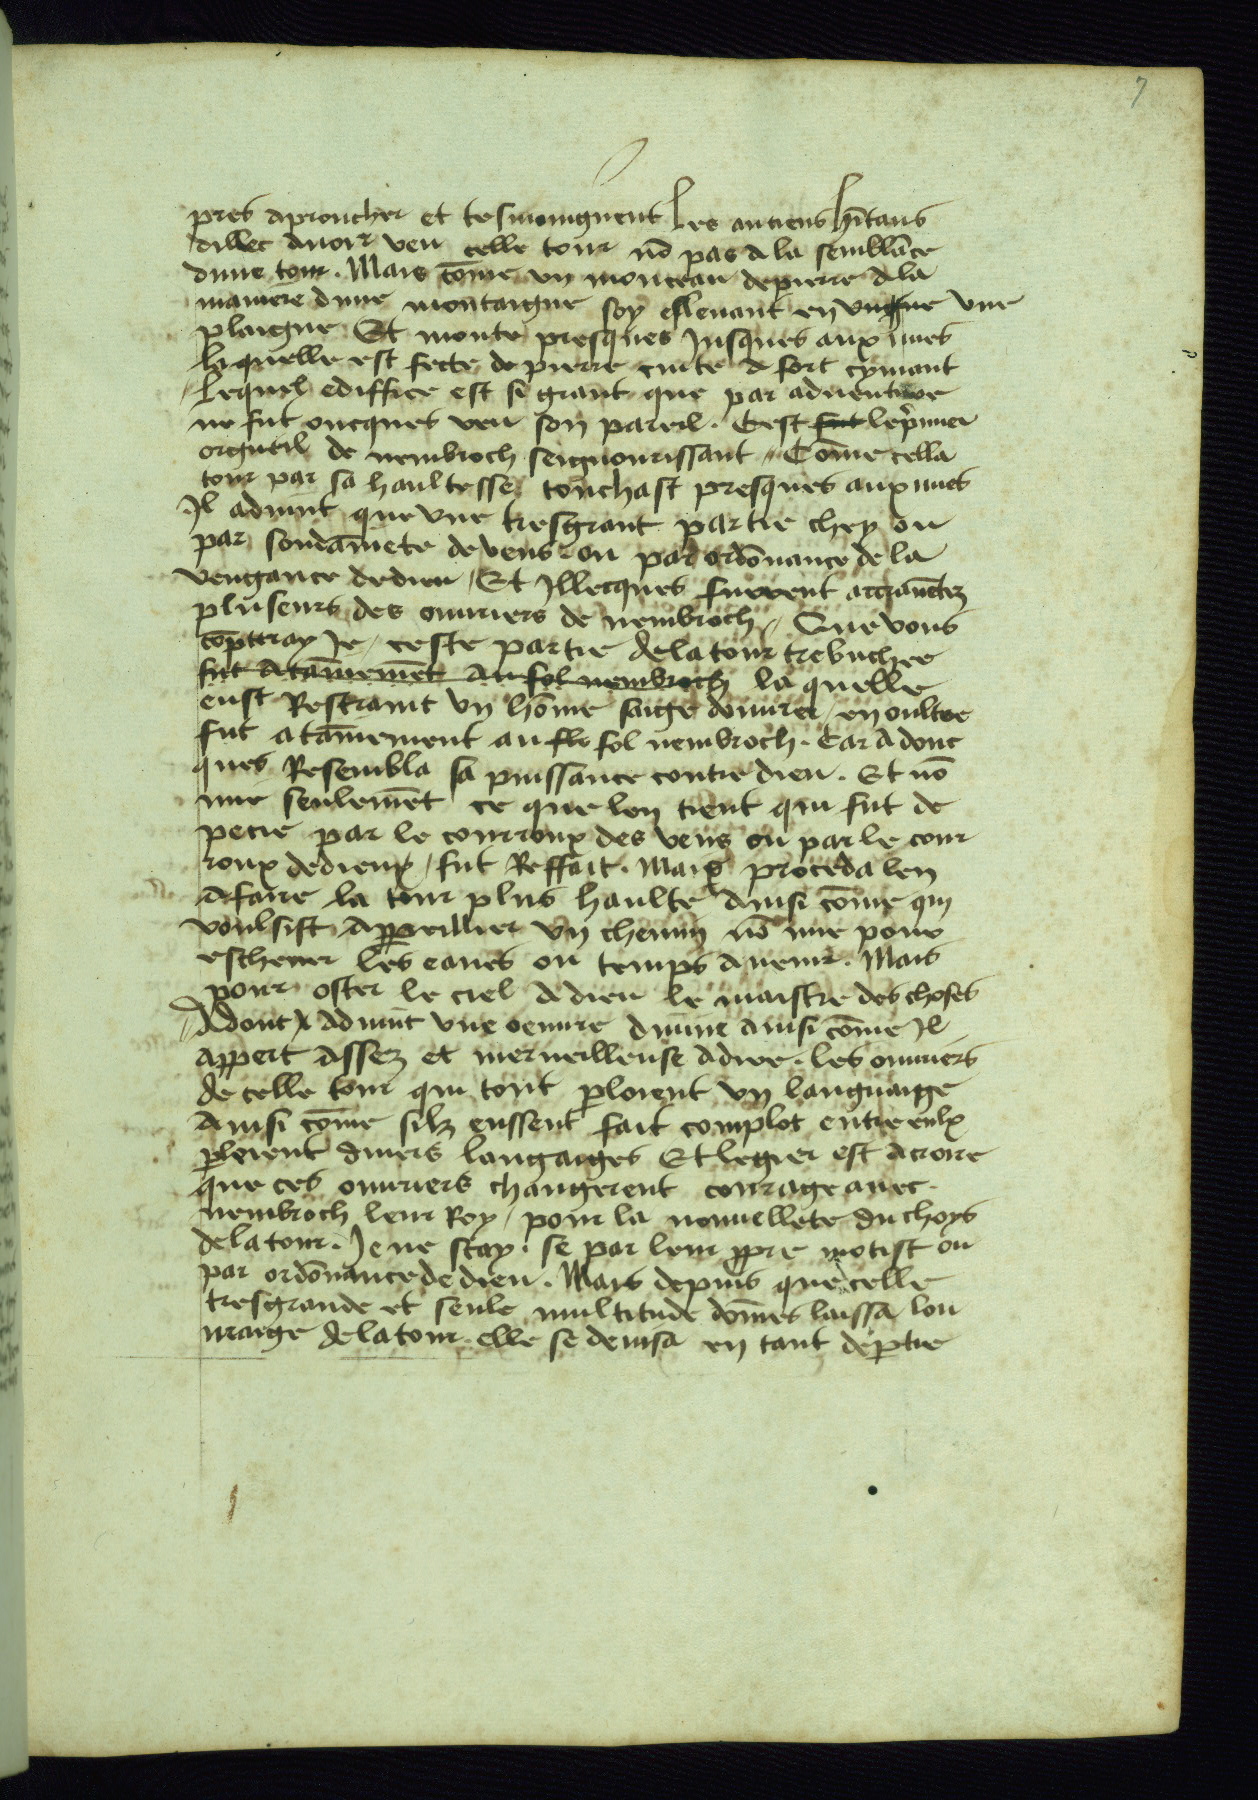 7
pres aproucher et tesmoingnent Les anciens hĩtans
dillec auoir veu celle tour nõ pas a la semblãce
dune tour. Mais cõme vn monceau de pierre a la
maniere dune montaigne soy eslenant en vne
plaigne Et monte presques Jusques aux nues
la quelle est fecte de pierre cuite a fort cymant
Lequel ediffice est si grant que par aduenture
ne fut oncques veu son pareil. Cest fut le p̃mier
orgueil de nembroch seignourissant // Cõme cella
tour par sa haultesse touchast presques aux nues
Il aduint que vne tresgrant partie chey ou
par soudãinete de vens ou par ordõnance de la
vengance de dieu / Et Illecques furrent accrauẽtez
pluseurs des ouuriers de nembroch // Que vous
cõpteray Je / ceste partie de la tour trebuchee
fut atãmemẽt au fol nembroch la quelle
eust Restraint vn hõme saige douurer / en oultre
fut atãmement au flo fol nembroch. Car a donc
ques Resembla sa puissance contre dieu. Et nõ
mie seulemẽt ce que len tient qui fut de
pecie par le courroux des vens ou par le cour
roux de dieux / fut Reffait. Mais proceda len
a faire la tour plus haulte Ainsi cõme qui
voulsist Appeillier vn chemin nõ mie pour
escheuer les eaues ou temps a venir. Mais
pour oster le ciel a dieu le maistre des choses
// Adont x aduint vne oeuure diuine ainsi cõme Il
appert assez et merueilleuse a dire. les ouuriers
de celle tour qui tont ploient vn languaige
Ainsi cõme silz eussent fait complot entre eulx
ploient diuers langaiges Et legier est a croire
que ces ouuriers changerent courage auec
nembroch leur Roy / pour la nouuellete du choys
de la tour. Je ne scay. se par leur ppre motist ou
par ordõnance de dieu. Mais depuis que celle
tresgrande et seule multitude dõmes laissa lou
uraige de la tour. elle se deuisa en tant de ptie